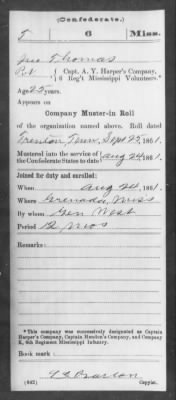 (Confederate.)
T 6 Miss.
Jno Thomas
Pvt { Capt. A. Y. Harper's Company,
6 Reg't Mississippi Volunteers.*
Age 25 years.
Appears on
Company Muster-in Roll
of the organization named above. Roll dated
Trenton, Tenn, Sept 25, 1861.
Mustered into the service of
the Confederate States to date } Aug 24, 1861.
Joined for duty and enrolled:
When Aug 24, 1861.
Where Grenada, Miss
By whom Gen West
Period 12 mos
Remarks:
*This company was successively designated as Captain
Harper's Company, Captain Company and Company
K, 6th Regiment Mississippi Infantry.
Book mark:
(642) Copyist.